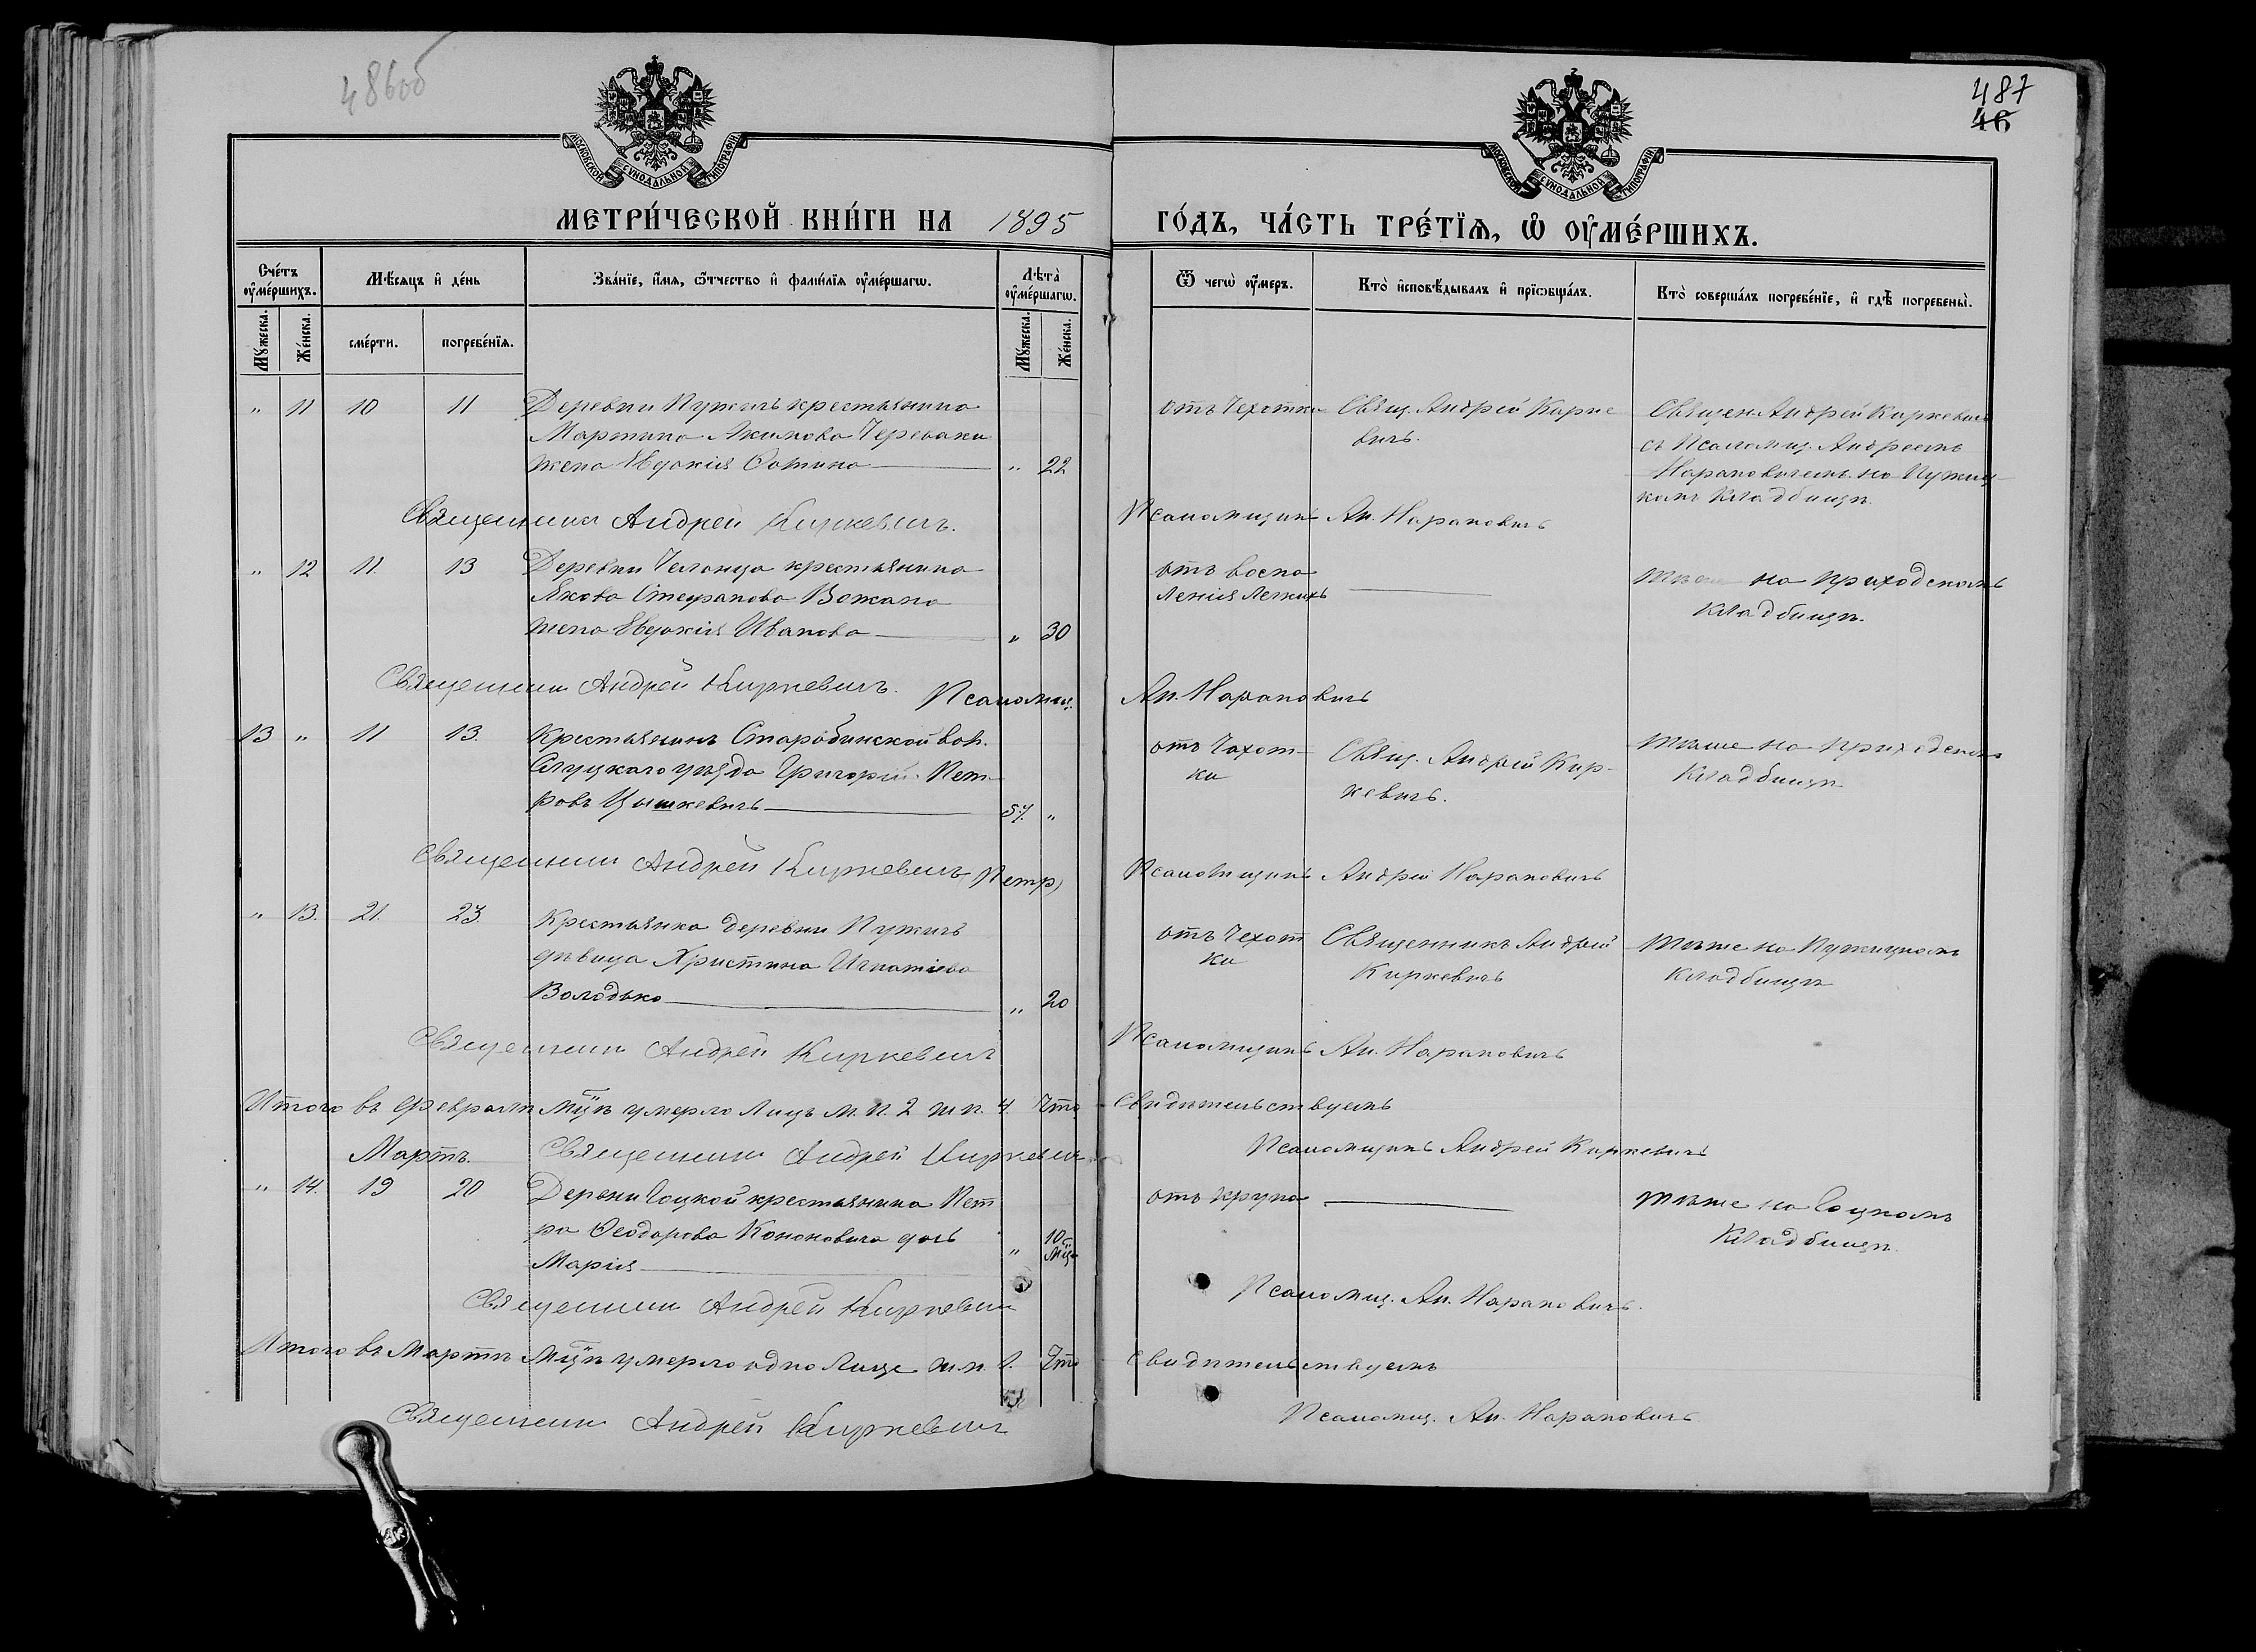 486об
487
46
МОСКОВСКОЙ СѴНОДАЛЬНОЙ ТИПОГРАФІИ
МОСКОВСКОЙ СѴНОДАЛЬНОЙ ТИПОГРАФІИ
МЕТРИ́ЧЕСКОЙ КНИ́ГИ НА 1895 ГО́ДЪ, ЧА́СТЬ ТРЕ́ТЇѦ, Ѽ ОУ҆МЕ́РШИХЪ.
Сче́тъ оу҆ме́ршихъ.
Мꙋ́жеска. Же́нска.
Мѣ́сѧцъ и҆ де́нь
сме́рти. погребе́нїѧ.
Зва́нїе, и҆́мѧ, ѻ҆́тчество и҆ фами́лїѧ оу҆ме́ршагѡ.
Лѣ́та оу҆ме́ршагѡ.
Мꙋ́жеска. Же́нска.
Ѿ чегѡ̀ оу҆́меръ.
Кто̀ и҆сповѣ́дывалъ и҆ прїѡбща́лъ.
Кто̀ соверша́лъ погребе́нїе, и҆ гдѣ̀ погребены̀.
" 11 10 11 Деревни Пужичъ крестьянина
Мартина Акимова Черевака
жена Евдокія Фомина " 22
отъ Чехотки
Свящ. Андрей Кирке
вичъ.
Священ. Андрей Киркевичъ
съ Псаломщ. Андреемъ
Нарановичемъ на Пужиц-
комъ Кладбищѣ.
Священникъ Андрей Киркевичъ. Псаломщикъ Ан. Нарановичъ
" 12 11. 13 Деревни Челонца крестьянина
Якова Стефанова Вожана
жена Евдокія Иванова " 30
отъ воспа
ленія Легкихъ
тѣже на приходскомъ
Кладбищѣ.
Священникъ Андрей Киркевичъ. Псаломщ. Ан. Нарановичъ
13 " 11 13. Крестьянинъ Старобинской вол.
Слуцкаго уѣзда Григорій Пет-
ровъ Цышкевичъ 57. "
отъ Чахот-
ки
Свящ. Андрей Кир-
кевичъ.
тѣже на приходскомъ
Кладбищѣ
Священникъ Андрей Киркевичъ Псаломщикъ Андрей Нарановичъ
" 13. 21. 23. Крестьянка деревни Пужичъ
дѣвица Христина Игнатіева
Володько " 20
отъ Чехот
ки
Священникъ Андрей
Киркевичъ
тѣже на Пужицкомъ
Кладбищѣ
Священникъ Андрей Киркевичъ Псаломщикъ Ан. Нарановичъ
Итого въ Февралѣ мцѣ умерло Лицъ м. п. 2 ж п. 4. Что свидѣтельствуемъ
Священникъ Андрей Киркевичъ Псаломщикъ Андрей Киркевичъ
Мартъ.
" 14. 19 20 Дервни Гоцкой крестьянина Пет
ра Феодорова Кононовича дочь
Марія " 10 мцъ
отъ крупа
тѣже на Гоцкомъ
Кладбищѣ.
Священникъ Андрей Киркевичъ Псаломщ. Ан. Нарановичъ.
Итого въ Мартѣ мцѣ умерло одно Лице ж. п. 1. Что свидѣтельствуемъ
Священникъ Андрей Киркевичъ Псаломщ. Ан. Нарановичъ